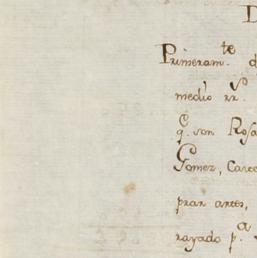 D
Primeram.te d
medio rr.s
q. son Rosa
Gomez, Carce
pran antes,
rayado p.a